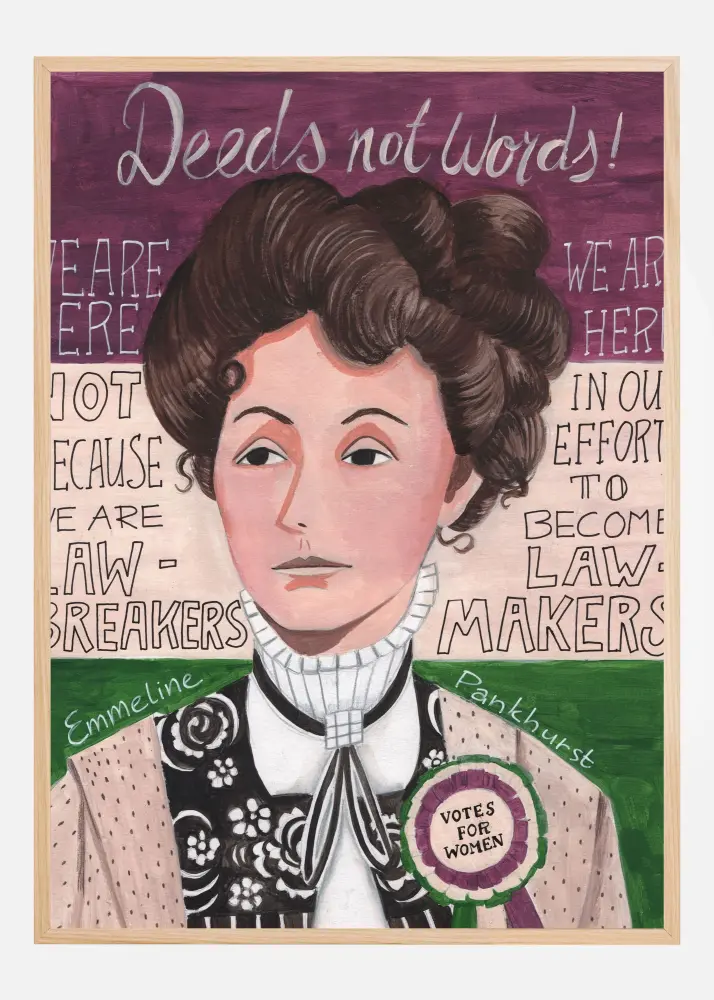 Deeds not Words!
EARE
ERE
NOT
ECAUSE
E ARE
AW -
BREAKERS
WE AR
HER
IN OU
EFFORT
TO
BECOME
LAW-
MAKERS
Emmeline
Pankhurst
VOTES
FOR
WOMEN